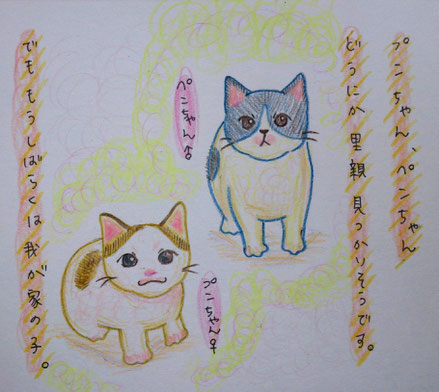 プンちゃん、ペンちゃん
どうにか里親見つかりそうです。
ペンちゃん♂
プンちゃん♀
でももうしばらくは我が家の子。